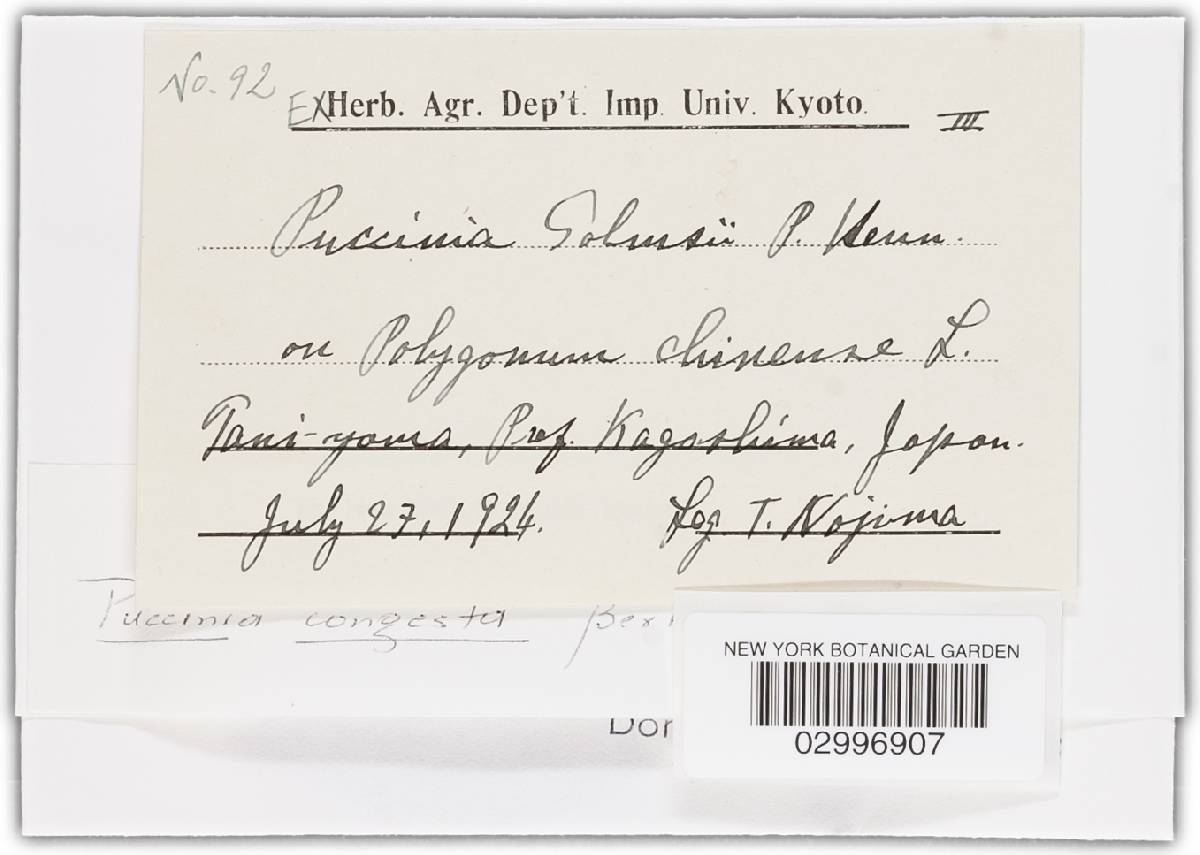 No. 92
Ex Herb. Agr. Dep't. Imp. Univ. Kyoto. III
Puccinia Solmsii P. Henn.
on Polygonum chinense L.
Tani-yama, Pref. Kagoshima, Japan.
July 27, 1924. Leg. T. Nojima
Puccinia congesta
NEW YORK BOTANICAL GARDEN
02996907